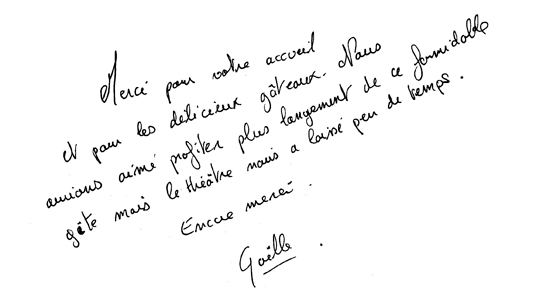 Merci pour votre accueil
et pour les délicieux gâteaux. Nous
aurions aimé profiter plus longement de ce formidable
gîte mais le théâtre nous a laissé peu de temps.
Encore merci.
Gaëlle.